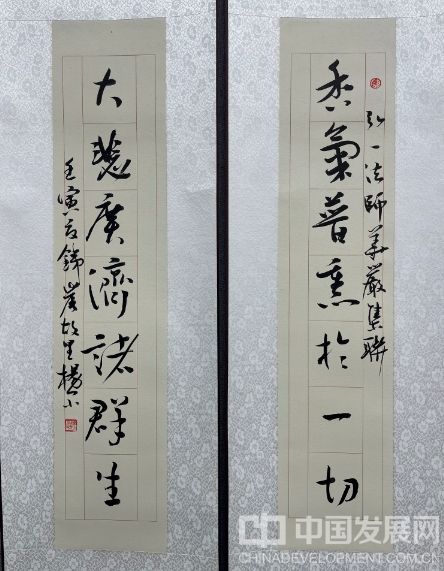 弘一法師華嚴集聯
香氣普熏於一切
大慈廣濟諸群生
壬寅故里楊小
中国发展网
CHINADEVELOPMENT.COM.CN